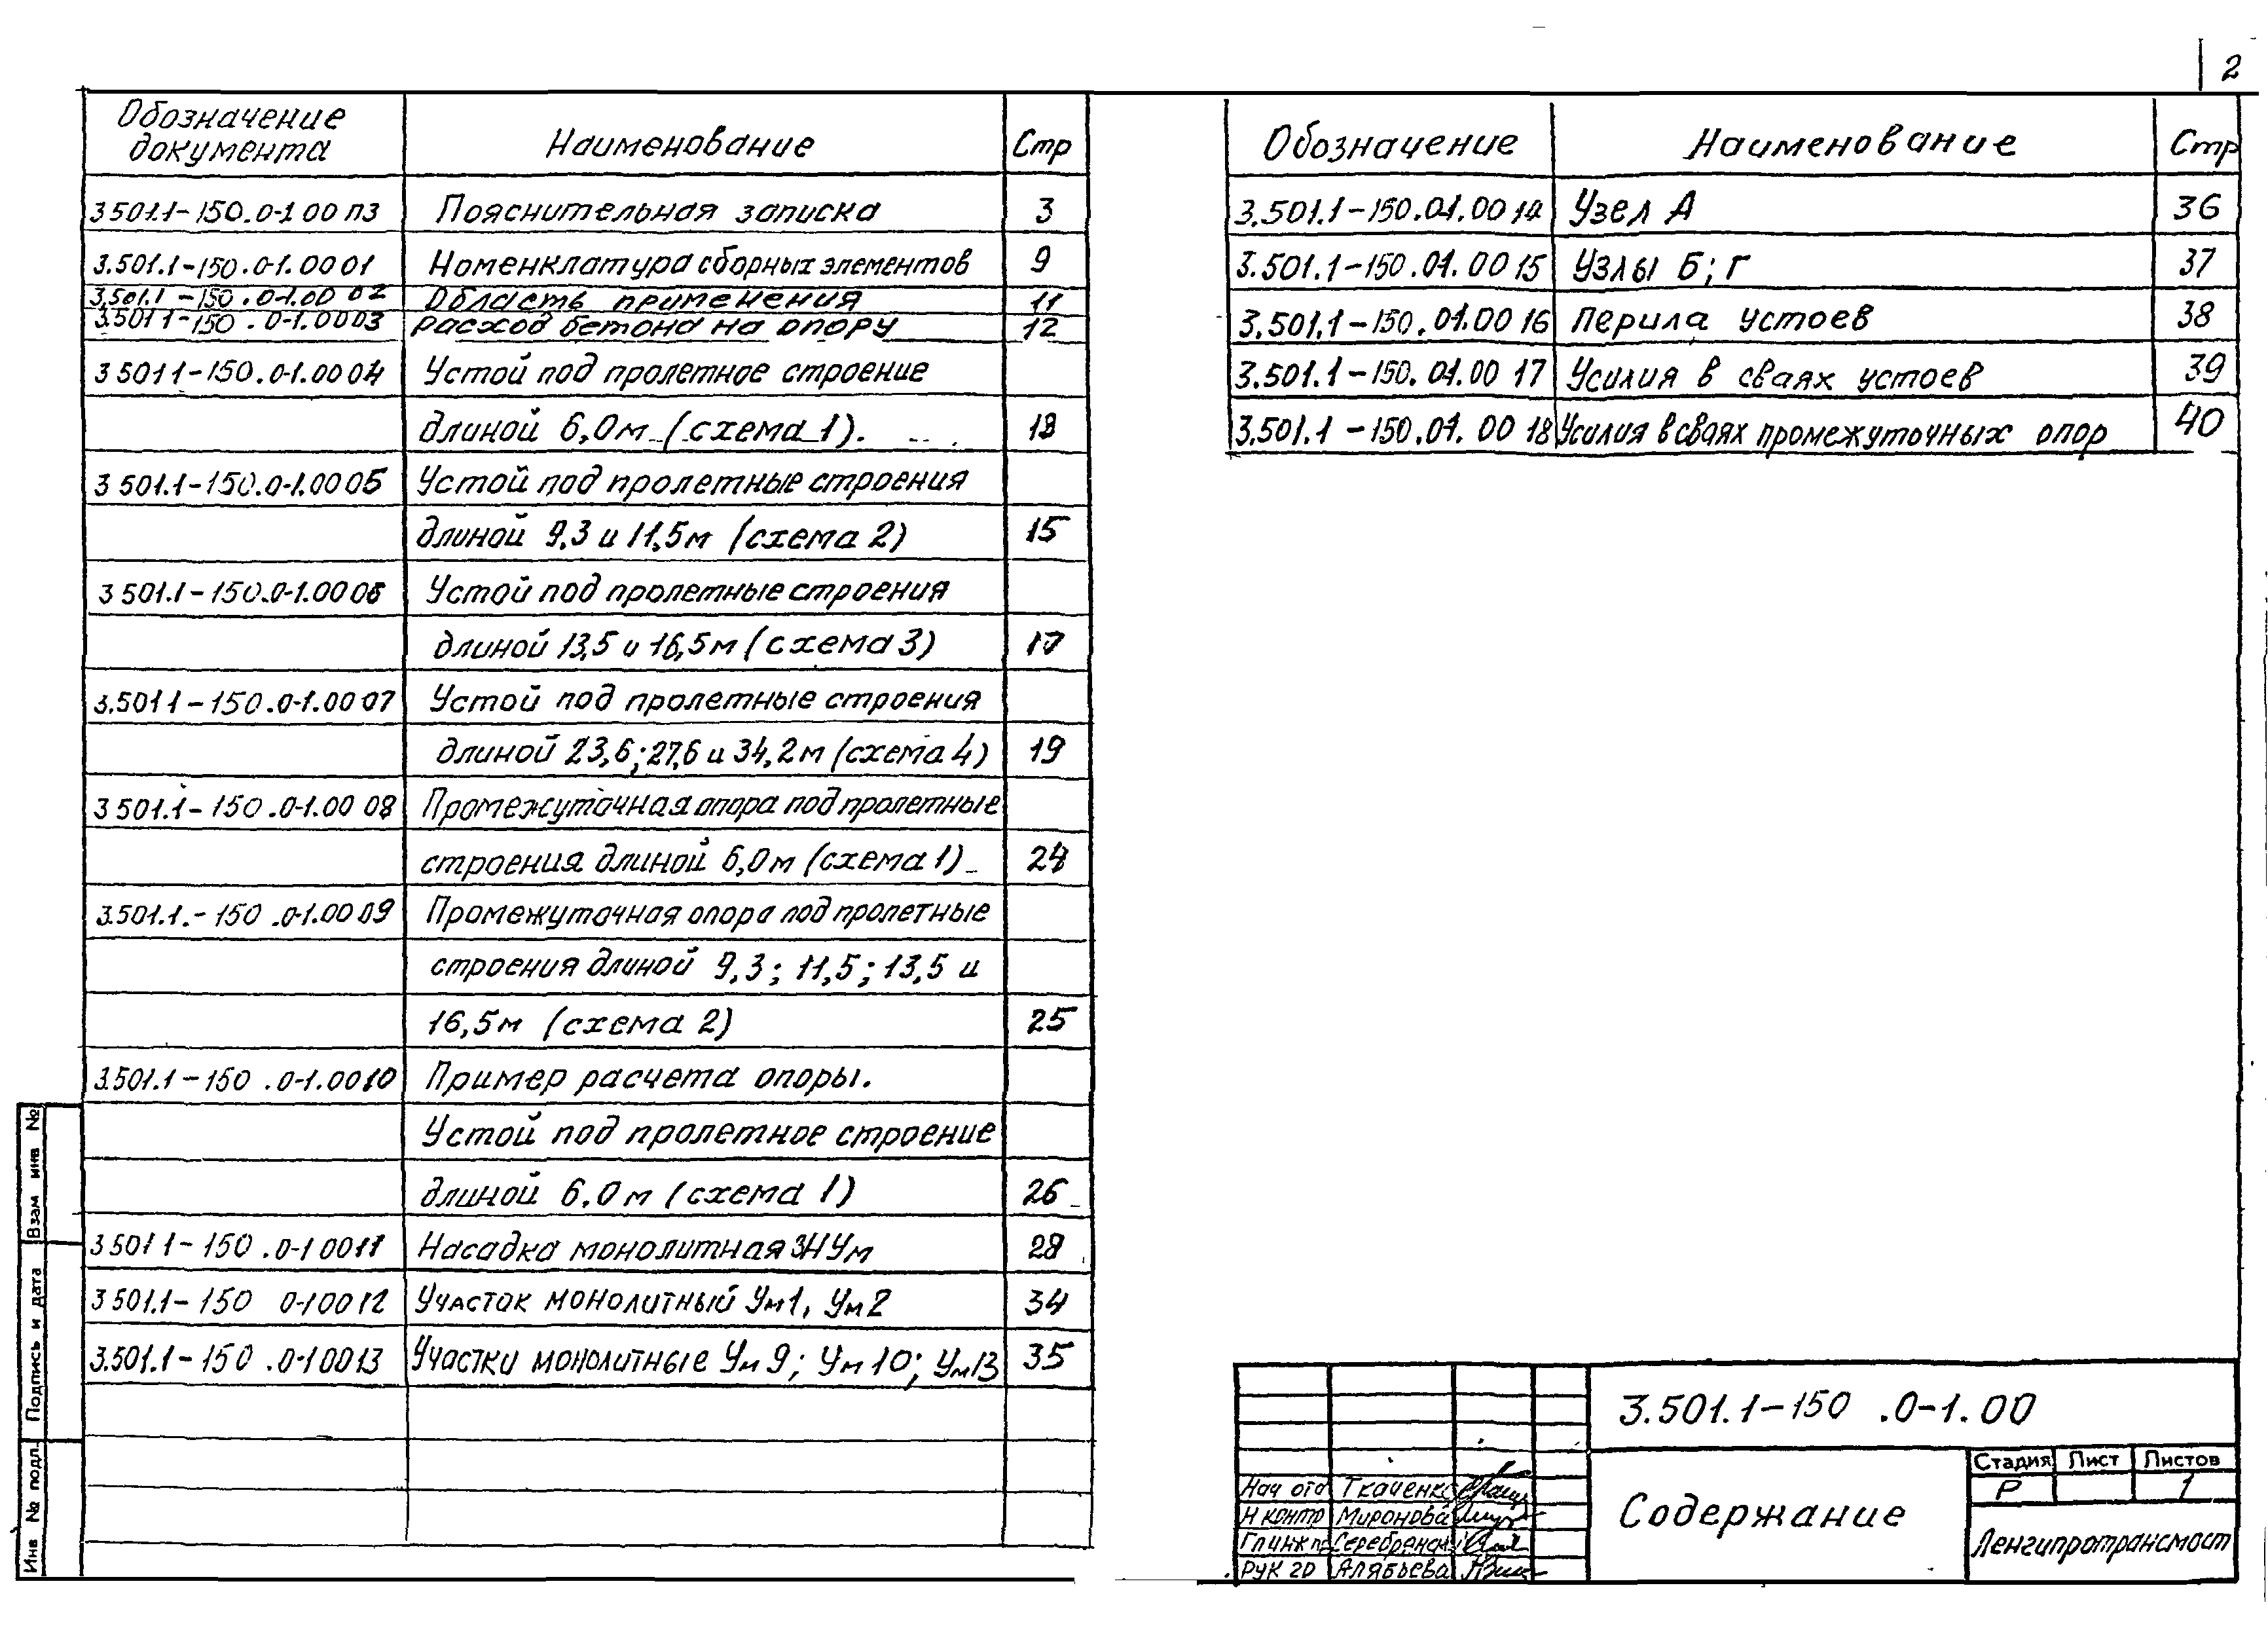 2
Обозначение документа Наименование Стр
3 501.1-150.0-1 00 ПЗ Пояснительная записка 3
3.501.1-150.0-1.00 01 Номенклатура сборных элементов 9
3.501.1-150.0-1.00 02 Область применения 11
3.501 1-150.0-1.00 03 Расход бетона на опору 12
3 501 1-150.0-1.00 04 Устой под пролетное строение
длиной 6,0м (схема 1). 13
3 501.1-150.0-1.00 05 Устой под пролетные строения
длиной 9,3 и 11,5м (схема 2) 15
3 501.1-150.0-1.00 06 Устой под пролетные строения
длиной 13,5 и 16,5м (схема 3) 17
3.501 1-150.0-1.00 07 Устой под пролетные строения
длиной 23,6; 27,6 и 34,2м (схема 4) 19
3 501.1-150.0-1.00 08 Промежуточная опора под пролетные
строения длиной 6,0м (схема 1) 24
3.501.1.-150.0-1.00 09 Промежуточная опора под пролетные
строения длиной 9,3; 11,5; 13,5 и
16,5м (схема 2) 25
3.501.1-150.0-1.00 10 Пример расчета опоры.
Устой под пролетное строение
длиной 6,0м (схема 1) 26
3 501 1-150.0-1 00 11 Насадка монолитная 3НУм 28
3 501.1-150 0-1 00 12 Участок монолитный Ум1, Ум2 34
3.501.1-150.0-1 00 13 Участки монолитные Ум9; Ум10; Ум13 35
Обозначение Наименование Стр
3.501.1-150.01.00 14 Узел А 36
3.501.1-150.01.00 15 Узлы Б; Г 37
3.501.1-150.01.00 16 Перила устоев 38
3.501.1-150.01.00 17 Усилия в сваях устоев 39
3.501.1-150.01.00 18 Усилия в сваях промежуточных опор 40
Взам инв №
Подпись и дата
Инв № подл.
3.501.1-150 .0-1.00
Содержание
Стадия Лист Листов
Р 1
Ленгипротрансмост
Нач отд Ткаченко
Н контр Миронова
Гл инж пр Серебрянский
Рук гр Алябьева